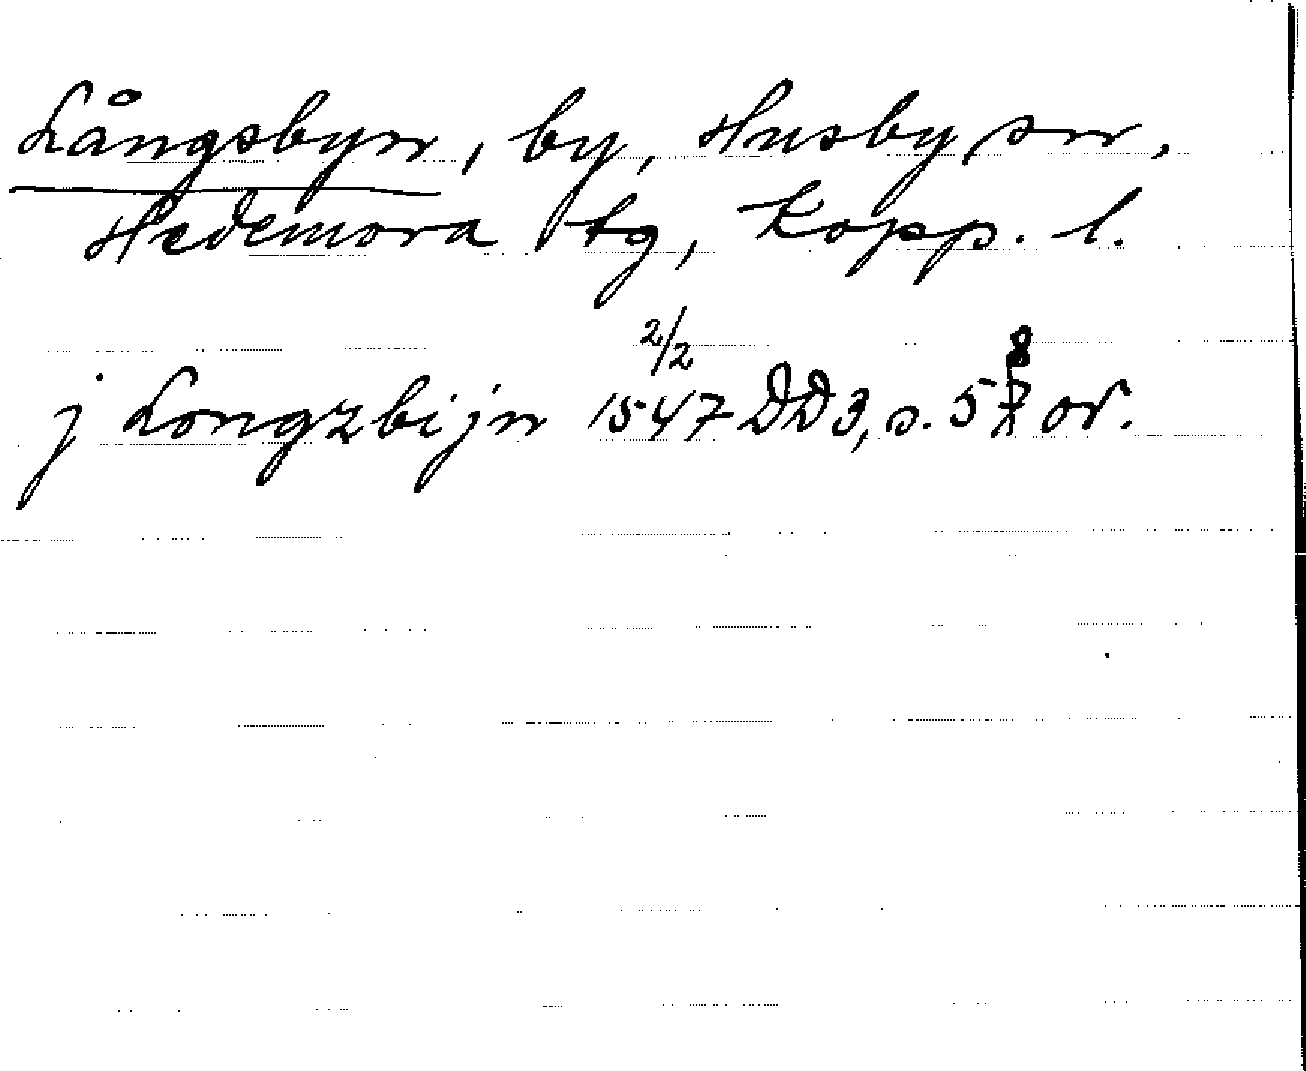 Långsbyn, by, Husby sn,
Hedemora tg, Kopp. l.
j Longzbijn 2/2 1547 DD3, s. 58 or.